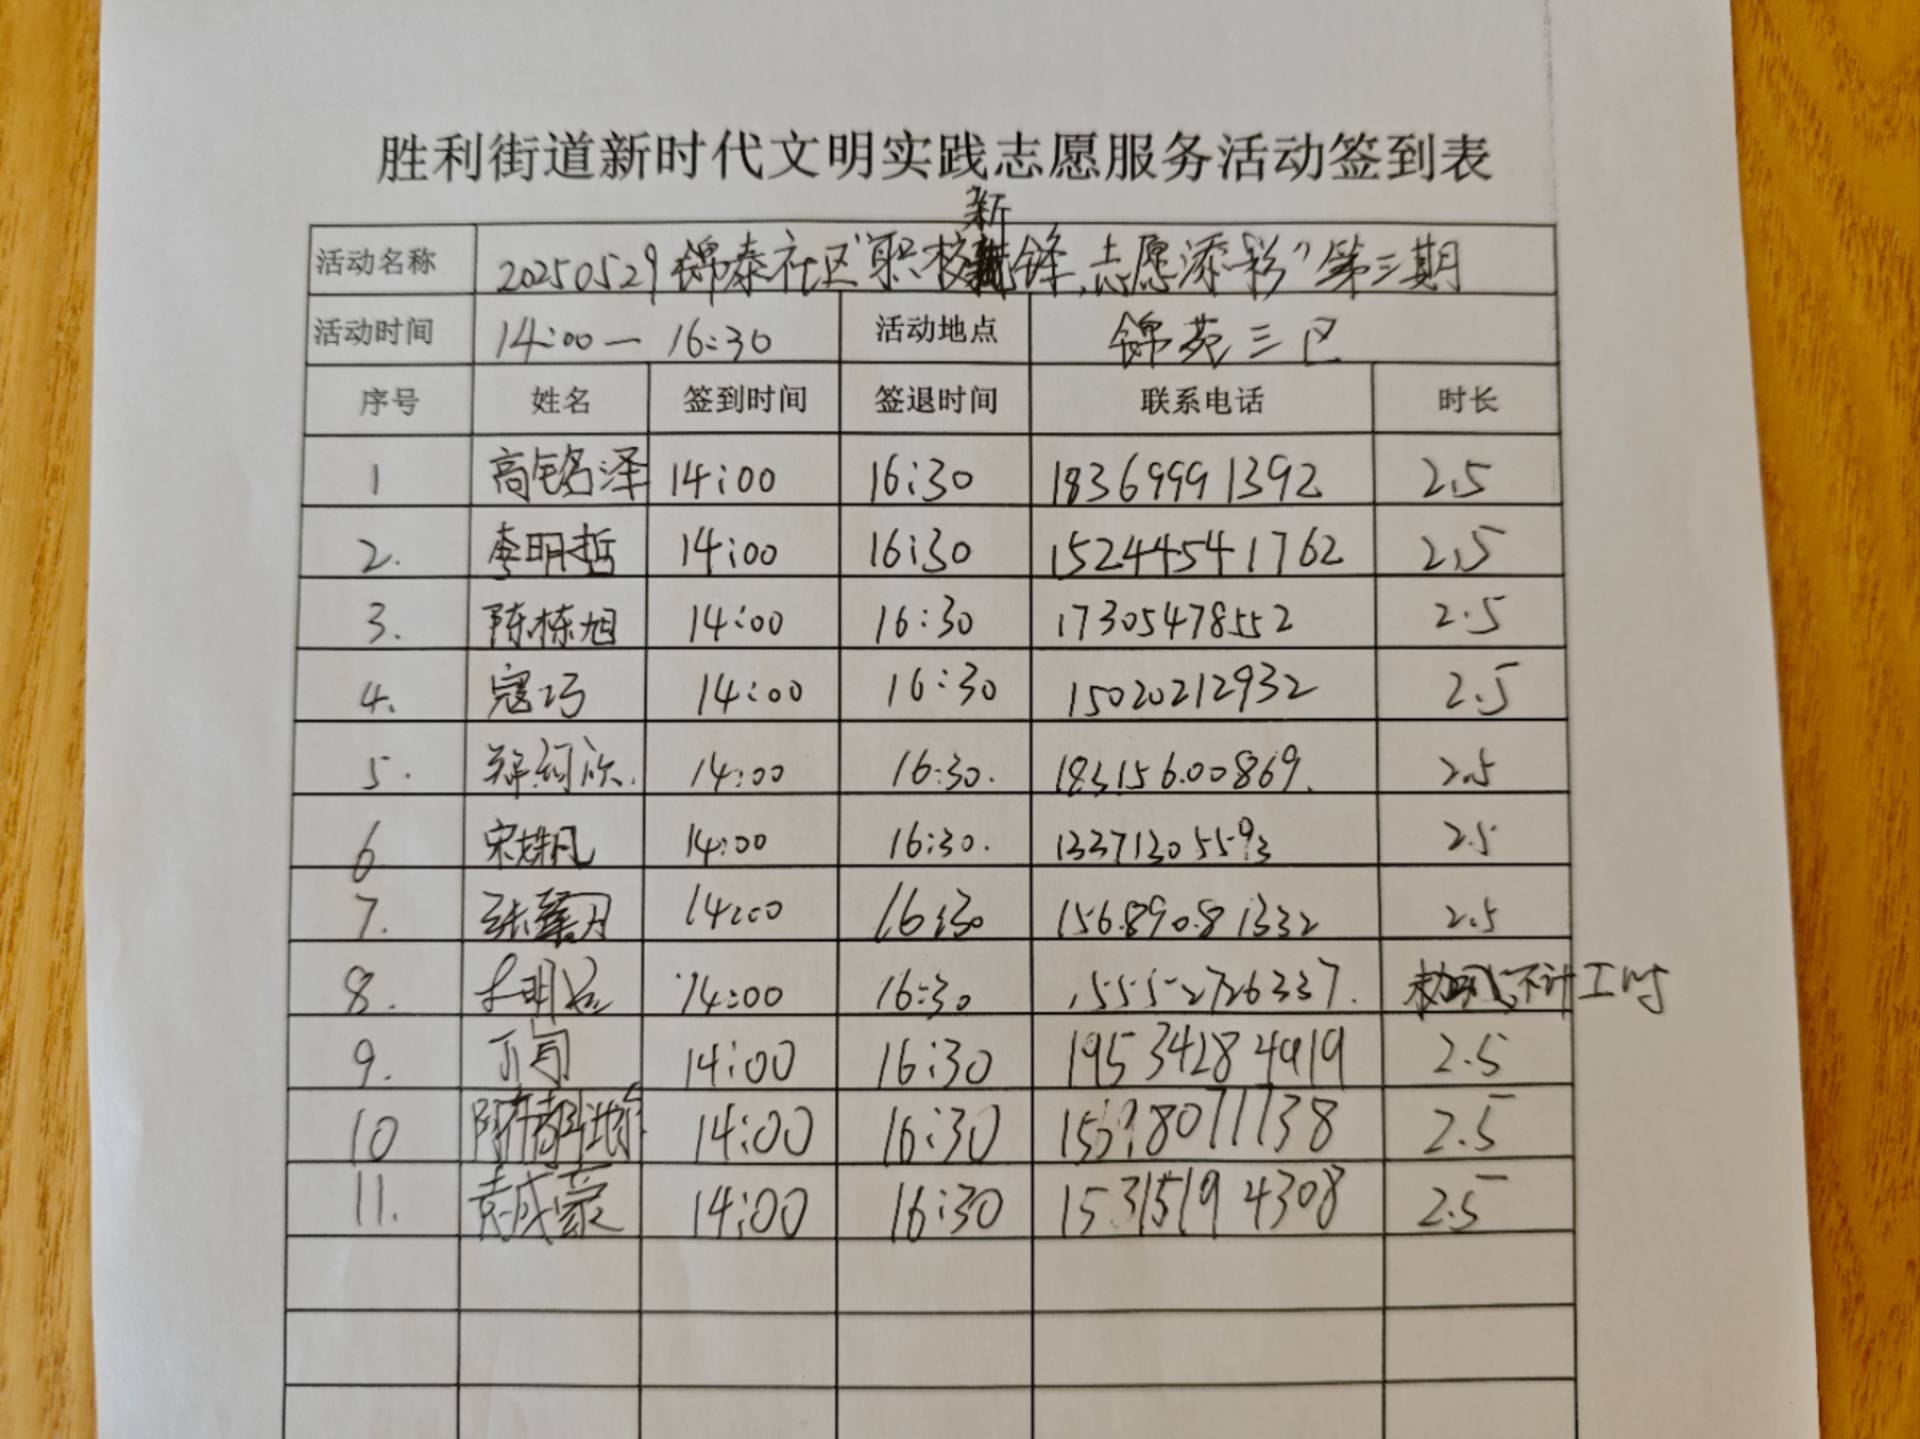 胜利街道新时代文明实践志愿服务活动签到表
新
活动名称 20250529锦泰社区"职校锋,志愿添彩"第三期
活动时间 14:00— 16:30 活动地点 锦苑三区
序号 姓名 签到时间 签退时间 联系电话 时长
1 高铭泽 14:00 16:30 18369991392 2.5
2. 李明哲 14:00 16:30 15244541762 2.5
3. 陈栋旭 14:00 16:30 17305478552 2.5
4. 寇巧 14:00 16:30 15020212932 2.5
5. 郑珂欣. 14:00 16:30. 18315600869. 2.5
6 宋姝凡 14:00 16:30. 13371305593 2.5
7. 张 14:00 16:30 15689081332 2.5
8. 14:00 16:30 15552726337. 不计工时
9. 丁旬 14:00 16:30 19534284919 2.5
10 14:00 16:30 2.5
11. 袁成豪 14:00 16:30 15315194308 2.5